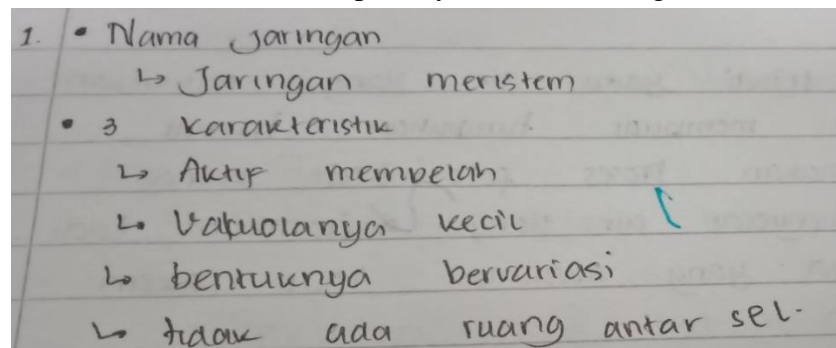 1. • Nama Jaringan
↳ Jaringan meristem
• 3 karakteristik
↳ Aktif membelah
↳ Vakuolanya kecil
↳ bentuknya bervariasi
↳ tidak ada ruang antar sel.